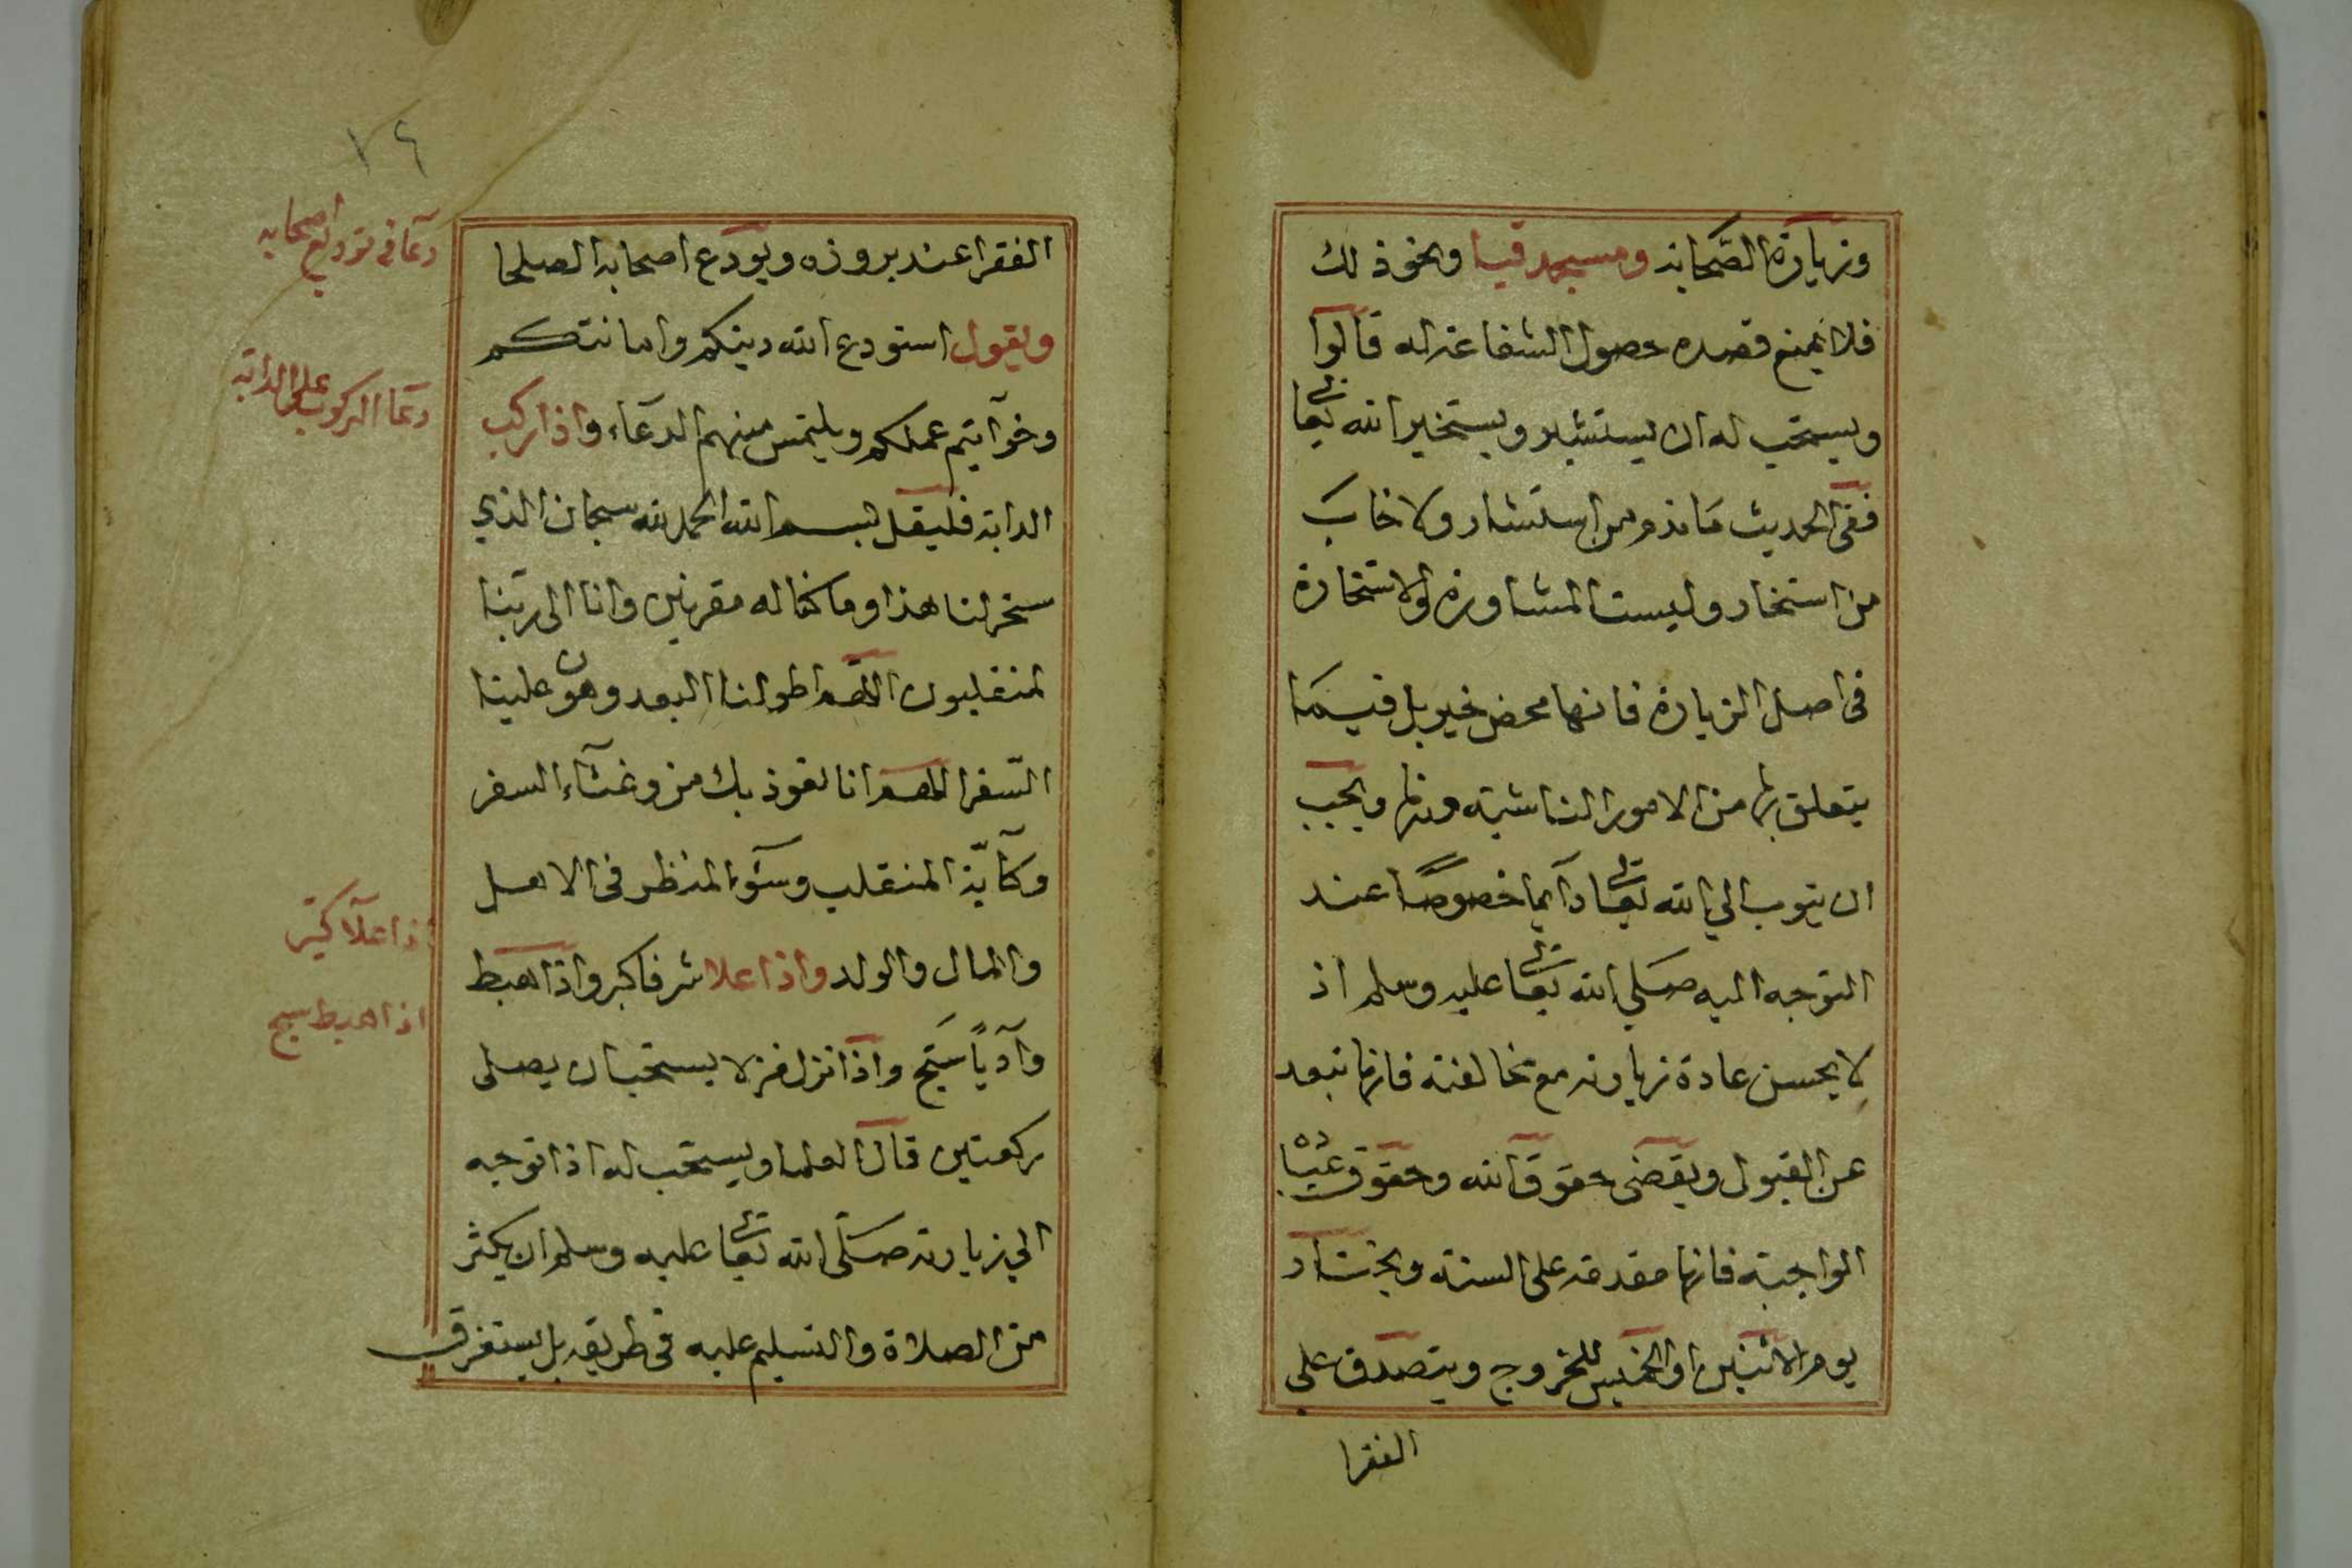 وزيارة الصحابه ومسجد قبا ونحو ذلك
فلا يمنع قصده حصول الشفاعة له قالوا
ويستحب له ان يستشير ويستخير الله تعالى
ففي الحديث ما ندم من استشار ولا خاب
من استخار وليست المشاورة والاستخارة
في اصل الزيارة فانها محض خير بل فيما
يتعلق بها من الامور الناشية ويجب
ان يتوب الي الله تعالى دآيما خصوصًا عند
التوجه اليه صلي الله تعالى عليه وسلم اذ
لا يحسن عادة زيارته مع مخالفته فانها تبعد
عن القبول ويقضى حقوق الله وحقوق عباده
الواجبة فانها مقدمة على السنة ويختار
يوم الاثنين او الخميس للخروج ويتصدق على
الفقرا
١٦
الفقرا عند بروزه ويودع اصحابه الصلحا
ويقول استودع الله دينكم وامانتكم
وخوآتيم عملكم ويلتمس منهم الدعاء واذا ركب
الدابة فليقل بسم الله الحمد لله سبحان الذي
سخر لنا هذا وما كنا له مقرنين وانا الى ربنا
لمنقلبون اللهم اطو لنا البعد وهون علينا
السّفر اللهم انا نعوذ بك من وعثآء السفر
وكآبة المنقلب وسوء المنظر في الاهل
والمال والولد واذا علا شرفا كبر واذا هبط
وآديًا سبح واذا نزل منزلا يستحب ان يصلى
ركعتين قال العلما ويستحب له اذا توجه
الي زيارته صلى الله تعالى عليه وسلم ان يكثر
من الصلاة والتسليم عليه في طريقه بل يستغرق
دعا في توديع اصحابه
دعا الركوب على الدابة
اذا علا كبر
اذا هبط سبح